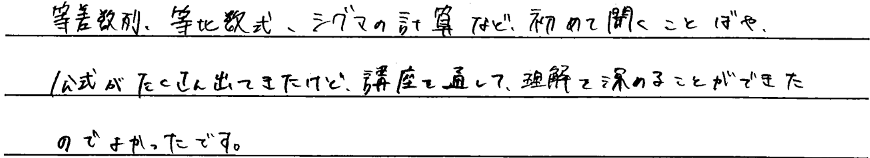 等差数列、等比数式、シグマの計算など、初めて聞くことばや、
公式がたくさん出てきたけど、講座を通して、理解を深めることができた
のでよかったです。